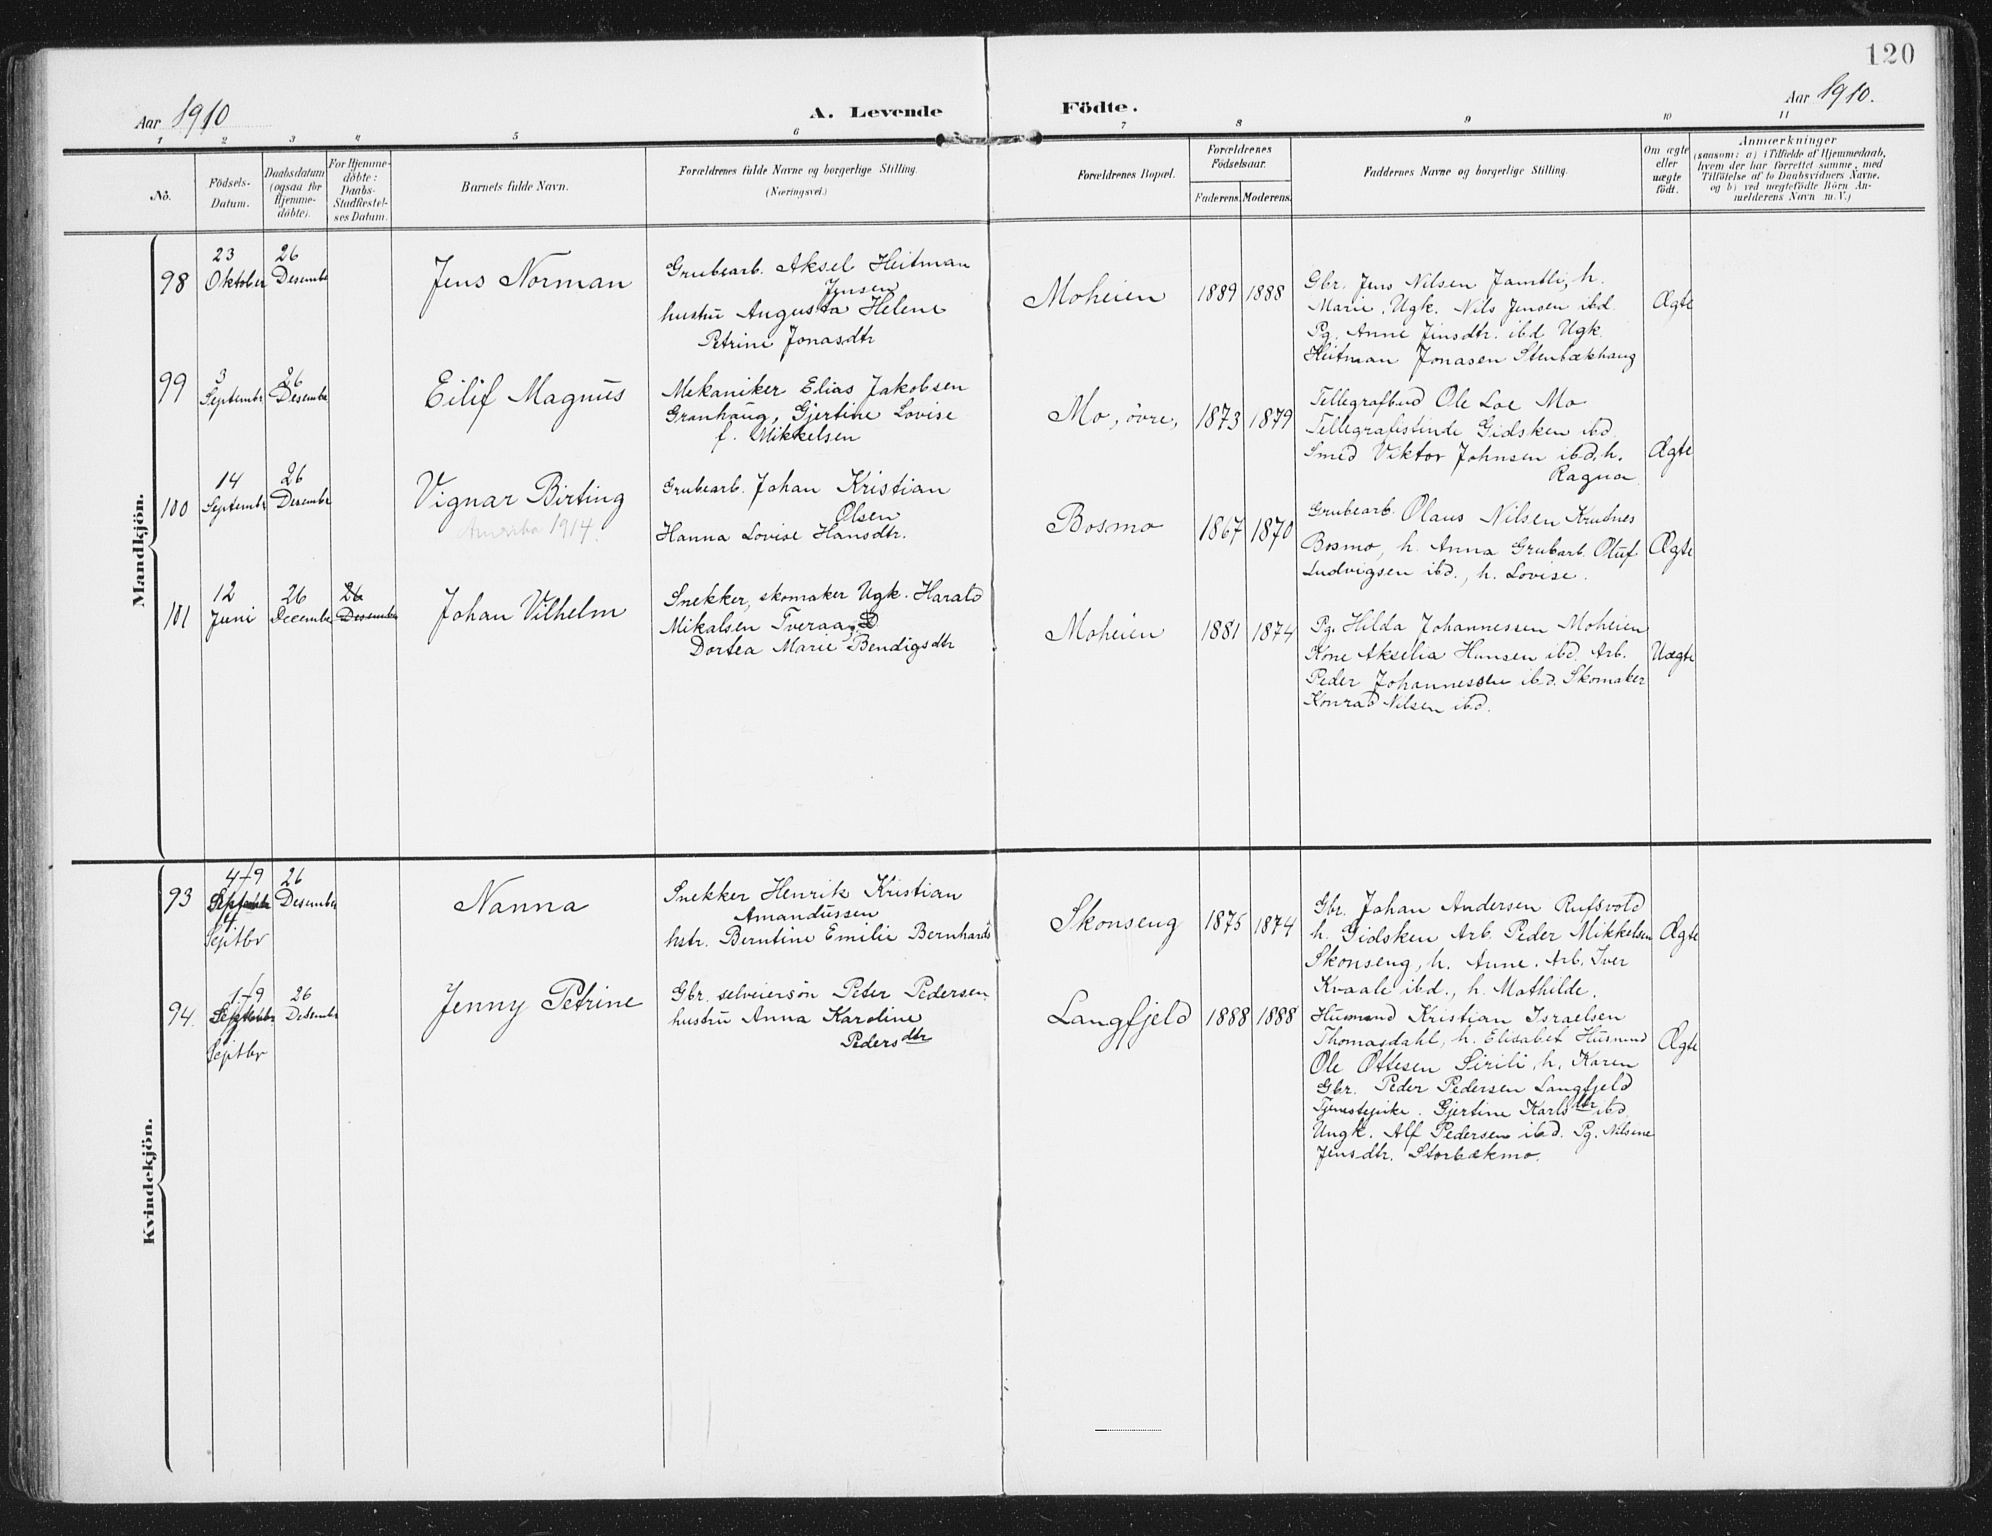 120
Aar 1910
A. Levende Födte.
Aar 1910.
1 2 3 4 5 6 7 8 9 10 11
No.
Födsels-
Datum.
Daabsdatum
(ogsaa for
Hjemme-
döbte).
For Hjemme-
döbte:
Daabs-
Stadfæstel-
ses Datum.
Barnets fulde Navn.
Forældrenes fulde Navne og borgerlige Stilling.
(Næringsvei.)
Forældrenes Bopæl.
Forældrenes
Födselsaar.
Faderens. Moderens.
Faddernes Navne og borgerlige Stilling.
Om ægte
eller
uægte
födt.
Anmærkninger
(saasom: a) i Tilfælde af Hjemmedaab,
hvem der har forrettet samme, med
Tilföielse af to Daabsvidners Navne,
og b) ved uægtefödte Börn An-
melderens Navn m. V.)
Mandkjön.
98
23
Oktober
26
Desembr
Jens Norman
Grubearb. Aksel Heitman
Jensen
hustru Augusta Helene
Petrine Jonasdtr
Moheien
1889 1888
Gbr. Jens Nilsen Jamtli, h.
Marie, Ugk. Nils Jensen ibd.
Pg. Anne Jensdtr. ibd Ugk.
Heitman Jonasen Stenbækhaug
Ægte
99
3
Septembr
26
Desembr
Eilif Magnus
Mekaniker Elias Jakobsen
Granhaug, Gjertine Lovise
f. Mikkelsen
Mo, övre,
1873 1879
Tellegrafbud Ole Loe Mo
Tellegrafistinde Gidsken ibd.
Smed Viktor Johnsen ibd, h.
Ragna
Ægte
100
14
Septembr
26
Desembr
Vignar Birting
1914.
Grubearb. Johan Kristian
Olsen
Hanna Lovise Hansdtr.
Bosmo
1867 1870
Grubearb. Olaus Nilsen Krutnes
Bosmo, h. Anna Grubarb. Oluf
Ludvigsen ibd., h. Lovise.
Ægte
101
12
Juni
26
Decembr
26
Desembr
Johan Vilhelm
Snekker, skomaker Ugk. Harald
Mikalsen Tveraa,
Dortea Marie Bendigsdtr
Moheien
1881 1874
Pg. Hilda Johannessen Moheien
Kone Akselia Hansen ibd. Arb.
Peder Johannessen ibd. Skomaker
Konrad Nilsen ibd.
Uægte
Kvindekjön.
93
4-9
Septembr
Septbr
26
Desembr
Nanna
Snekker Henrik Kristian
Amandussen
hstr. Berntine Emilie Bernhards
Skonseng
1875 1874
Gbr. Johan Andersen Rufsvold
h. Gidsken Arb. Peder Mikkelsen
Skonseng, h. Anne. Arb. Iver
Kvaale ibd., h. Mathilde.
Ægte
94.
1-9
Septbr
26
Desembr
Jenny Petrine
Gbr. selveiersön Peter Pedersen,
hustru Anna Karoline
Pedersdtr
Langfjeld
1888 1888
Husmand Kristian Israelsen
Thomasdahl, h. Elisabet Husmand
Ole Ottesen Sirili, h. Karen
Gbr. Peder Pedersen Langfjeld
Tjenestepike. Gjertine Karlsdtr ibd.
Ungk. Alf Pedersen ibd. Pg. Nilsine
Jensdtr. Storbækmo.
Ægte